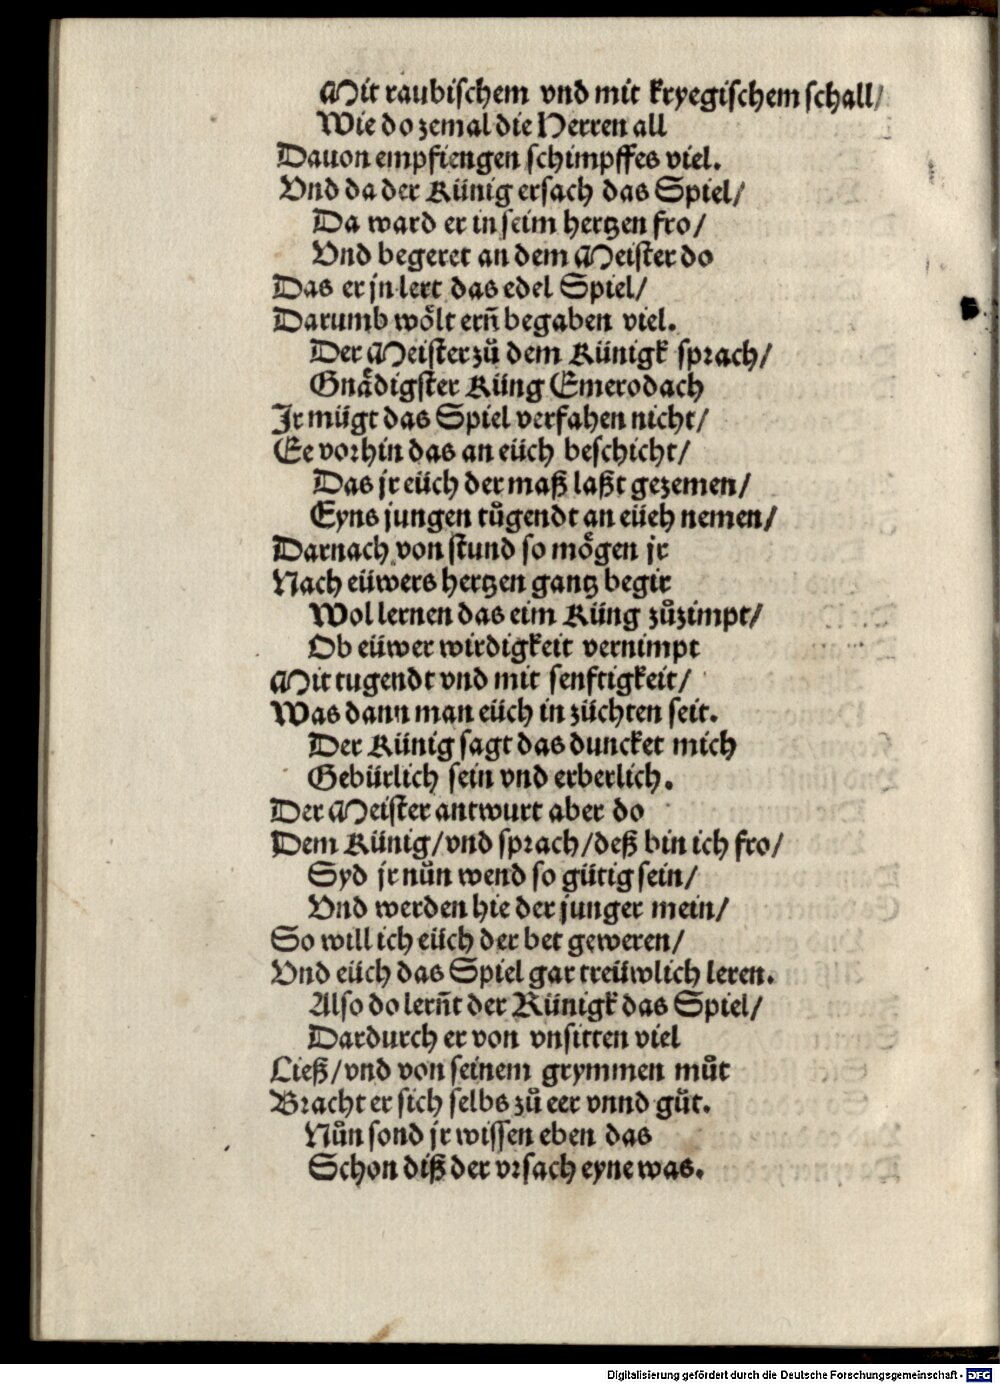 Mit raubischem vnd mit kryegischem schall/
Wie do zemal die Herren all
Dauon empfiengen schimpffes viel.
Vnd da der Künig ersach das Spiel/
Da ward er in seim hertzen fro/
Vnd begeret an dem Meister do
Das er jn lert das edel Spiel/
Darumb wo̊lt ern̄ begaben viel.
Der Meister zů dem Künigk sprach/
Gnådigster Küng Emerodach
Jr mügt das Spiel verfahen nicht/
Ee vorhin das an eüch beschicht/
Das jr eüch der maß laßt gezemen/
Eyns jungen tůgendt an eüeh nemen/
Darnach von stund so mo̊gen jr
Nach eüwers hertzen gantz begir
Wol lernen das eim Küng zůzimpt/
Ob eüwer wirdigkeit vernimpt
Mit tugendt vnd mit senftigkeit/
Was dann man eüch in züchten seit.
Der Künig sagt das duncket mich
Gebürlich sein vnd erberlich.
Der Meister antwurt aber do
Dem Künig/vnd sprach/deß bin ich fro/
Syd jr nůn wend so gütig sein/
Vnd werden hie der junger mein/
So will ich eüch der bet geweren/
Vnd eüch das Spiel gar treüwlich leren.
Also do lern̄t der Künigk das Spiel/
Dardurch er von vnsitten viel
Ließ/vnd von seinem grymmen můt
Bracht er sich selbs zů eer vnnd gůt.
Nůn sond jr wissen eben das
Schon diß der vrsach eyne was.
Digitalisierung gefördert durch die Deutsche Forschungsgemeinschaft - DFG